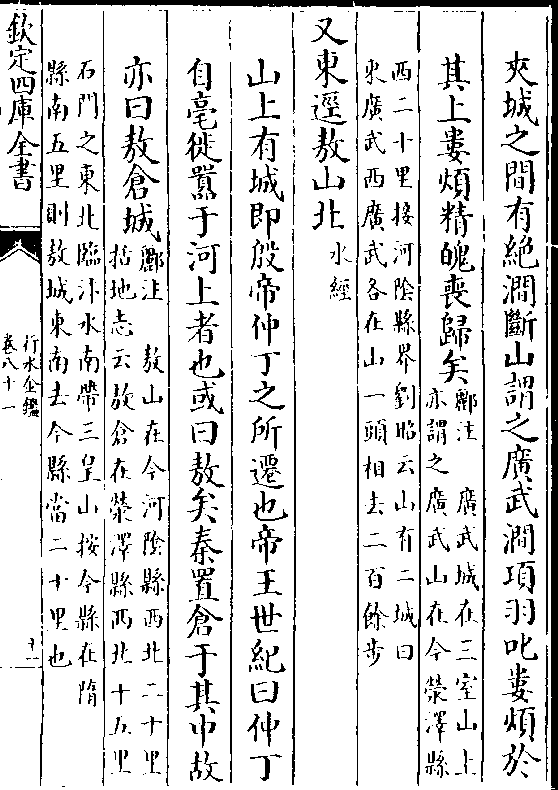 夾城之間有絶澗斷山謂之廣武澗項羽叱婁煩於
其上婁煩精魄喪歸矣
酈注 廣武城在三室山上
亦謂之廣武山在今滎澤縣
西二十里接河陰縣界劉昭云山有二城曰
東廣武西廣武各在山一頭相去二百餘步
又東逕敖山北水經
山上有城即殷帝仲丁之所遷也帝王世紀曰仲丁
自亳徙嚻于河上者也或曰敖矣秦置倉于其中故
亦曰敖倉城
酈注 敖山在今河陰縣西北二十里
括地志云敖倉在滎澤縣西北十五里
石門之東北臨汴水南帶三皇山按今縣在隋
縣南五里則敖城東南去今縣當二十里也
欽定四庫全書
行水金鑑
卷八十一
十一